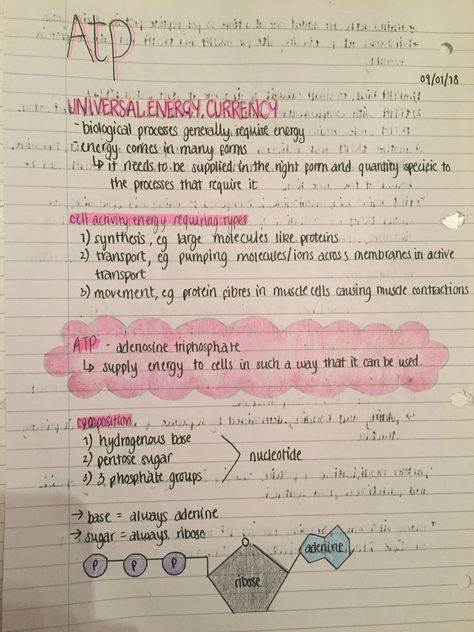 ATP
09/01/18
UNIVERSAL ENERGY CURRENCY
- biological processes generally require energy
energy comes in many forms
↳ it needs to be supplied in the right form and quantity specific to
the processes that require it
cell activity energy requiring types
1) synthesis, eg large molecules like proteins
2) transport, eg pumping molecules/ions across membranes in active
transport
3) movement, eg protein fibres in muscle cells causing muscle contractions
ATP - adenosine triphosphate
↳ supply energy to cells in such a way that it can be used.
composition
1) hydrogenous base
2) pentose sugar
3) 3 phosphate groups
nucleotide
→ base = always adenine
→ sugar = always ribose
P P P
O
ribose
adenine